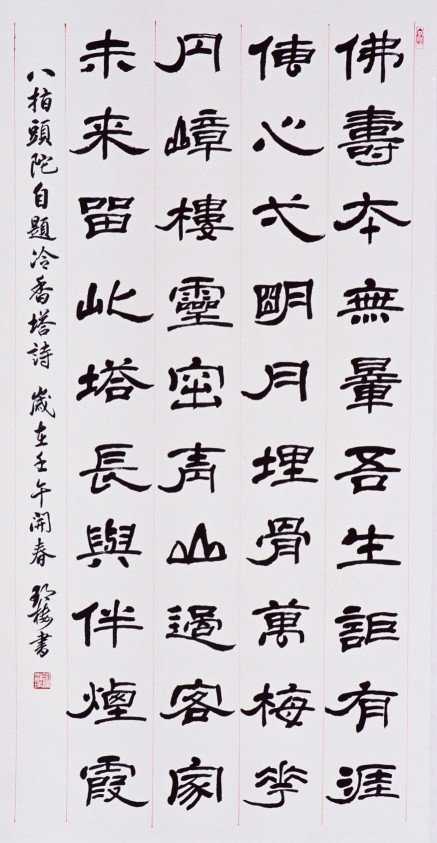 佛壽本無量吾生詎有涯
傳心弌明月埋骨萬梅花
丹嶂樓靈窟青山過客家
未来留此塔長與伴煙霞
八指頭陀自題冷香塔詩 歲在壬午開春 書